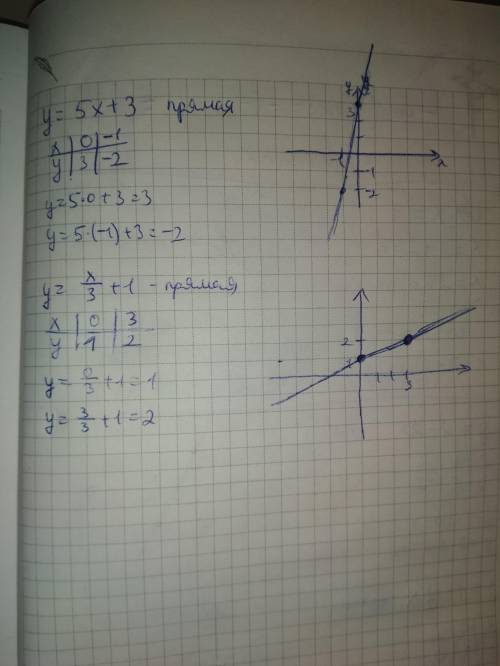 y = 5x + 3 прямая
x | 0 | -1
y | 3 | -2
y = 5·0 + 3 = 3
y = 5·(-1) + 3 = -2
y = x/3 + 1 - прямая
x | 0 | 3
y | 1 | 2
y = 0/3 + 1 = 1
y = 3/3 + 1 = 2
y
3
-1
x
-1
-2
2
1
3